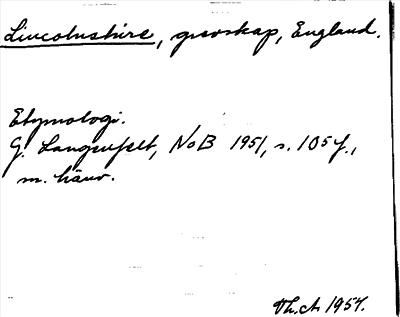 Lincolnshire, grevskap, England.
Etymologi.
G. Langenfelt, NoB 1951, s. 105 f.,
m. hänv.
Th. A. 1957.